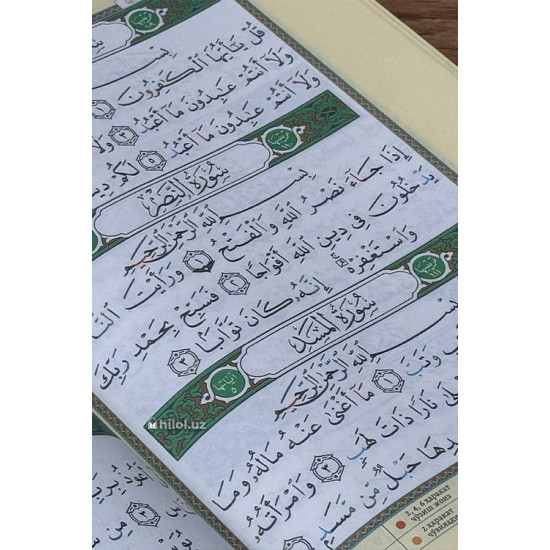 قُلْ يَٰٓأَيُّهَا ٱلْكَٰفِرُونَ ١
وَلَآ أَنتُمْ عَٰبِدُونَ مَآ أَعْبُدُ ٣ وَلَآ
وَلَآ أَنتُمْ عَٰبِدُونَ مَآ أَعْبُدُ ٥ لَكُمْ
سُورَةُ النَّصْرِ
بِسْمِ ٱللَّهِ ٱلرَّحْمَٰنِ ٱلرَّحِيمِ
إِذَا جَآءَ نَصْرُ ٱللَّهِ وَٱلْفَتْحُ ١ وَرَأَيْتَ
يَدْخُلُونَ فِى دِينِ ٱللَّهِ أَفْوَاجًا ٢ فَسَبِّحْ بِحَمْدِ رَبِّكَ
وَٱسْتَغْفِرْهُ إِنَّهُۥ كَانَ تَوَّابًۢا ٣
سُورَةُ المَسَدِ
بِسْمِ ٱللَّهِ ٱلرَّحْمَٰنِ ٱلرَّحِيمِ
وَتَبَّ ١ مَآ أَغْنَىٰ عَنْهُ مَالُهُۥ وَمَا
نَارًا ذَاتَ لَهَبٍ ٣ وَٱمْرَأَتُهُۥ
حَبْلٌ مِّن مَّسَدٍۭ
hilol.uz
2, 4, 6 ҳаракат
чўзиш жоиз
2 ҳаракат